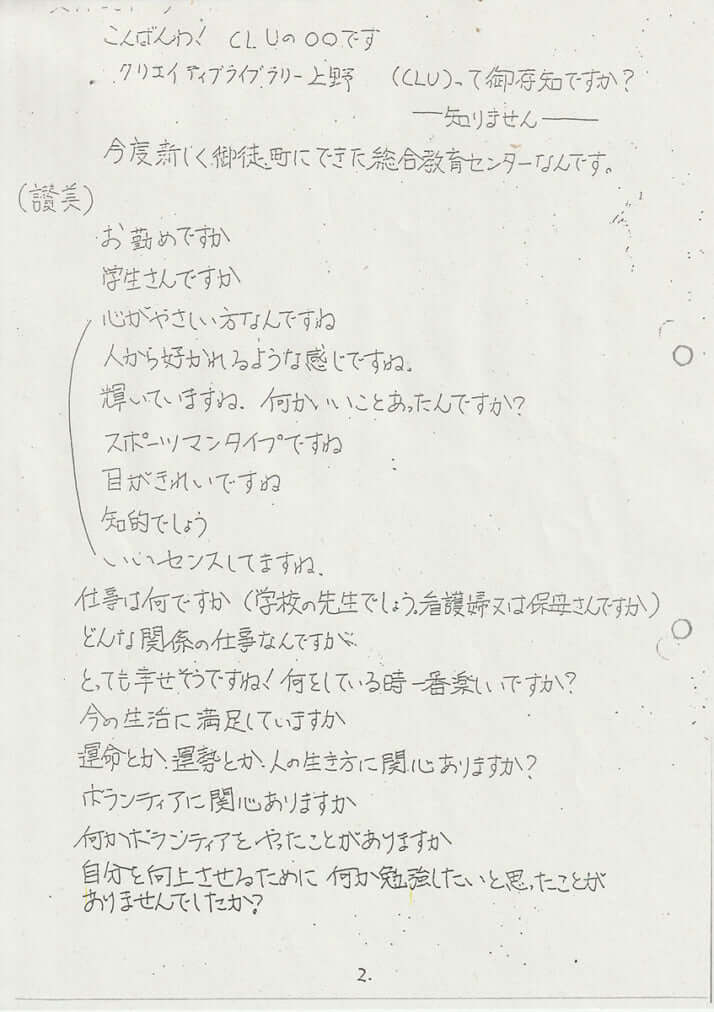 こんばんわ! CLUの〇〇です
クリエイティブライブラリー上野 (CLU)って御存知ですか?
―知りません――
今度新しく御徒町にできた総合教育センターなんです。
(讃美)
お勤めですか
学生さんですか
心がやさしい方なんですね
人から好かれるような感じですね。
輝いていますね. 何かいいことあったんですか?
スポーツマンタイプですね
目がきれいですね
知的でしょう
いいセンスしてますね.
仕事は何ですか (学校の先生でしょう。看護婦又は保母さんですか)
どんな関係の仕事なんですか
とっても幸せそうですね! 何をしている時一番楽しいですか?
今の生活に満足していますか
運命とか、運勢とか、人の生き方に関心ありますか?
ボランティアに関心ありますか
何かボランティアをやったことがありますか
自分を向上させるために何か勉強したいと思ったことが
ありませんでしたか?
2.